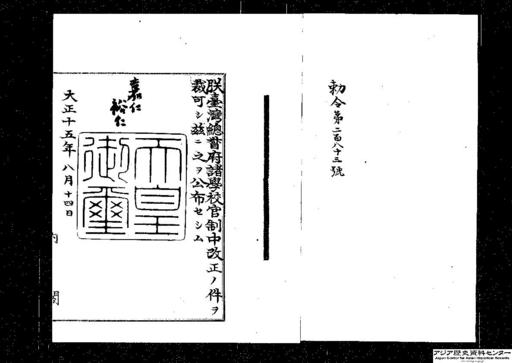 勅令第二百八十三號
朕臺灣總督府諸學校官制中改正ノ件ヲ
裁可シ玆ニ之ヲ公布セシム
嘉仁
裕仁
天皇
御璽
大正十五年八月十四日
内閣
アジア歴史資料センター
Japan Center for Asian Historical Records